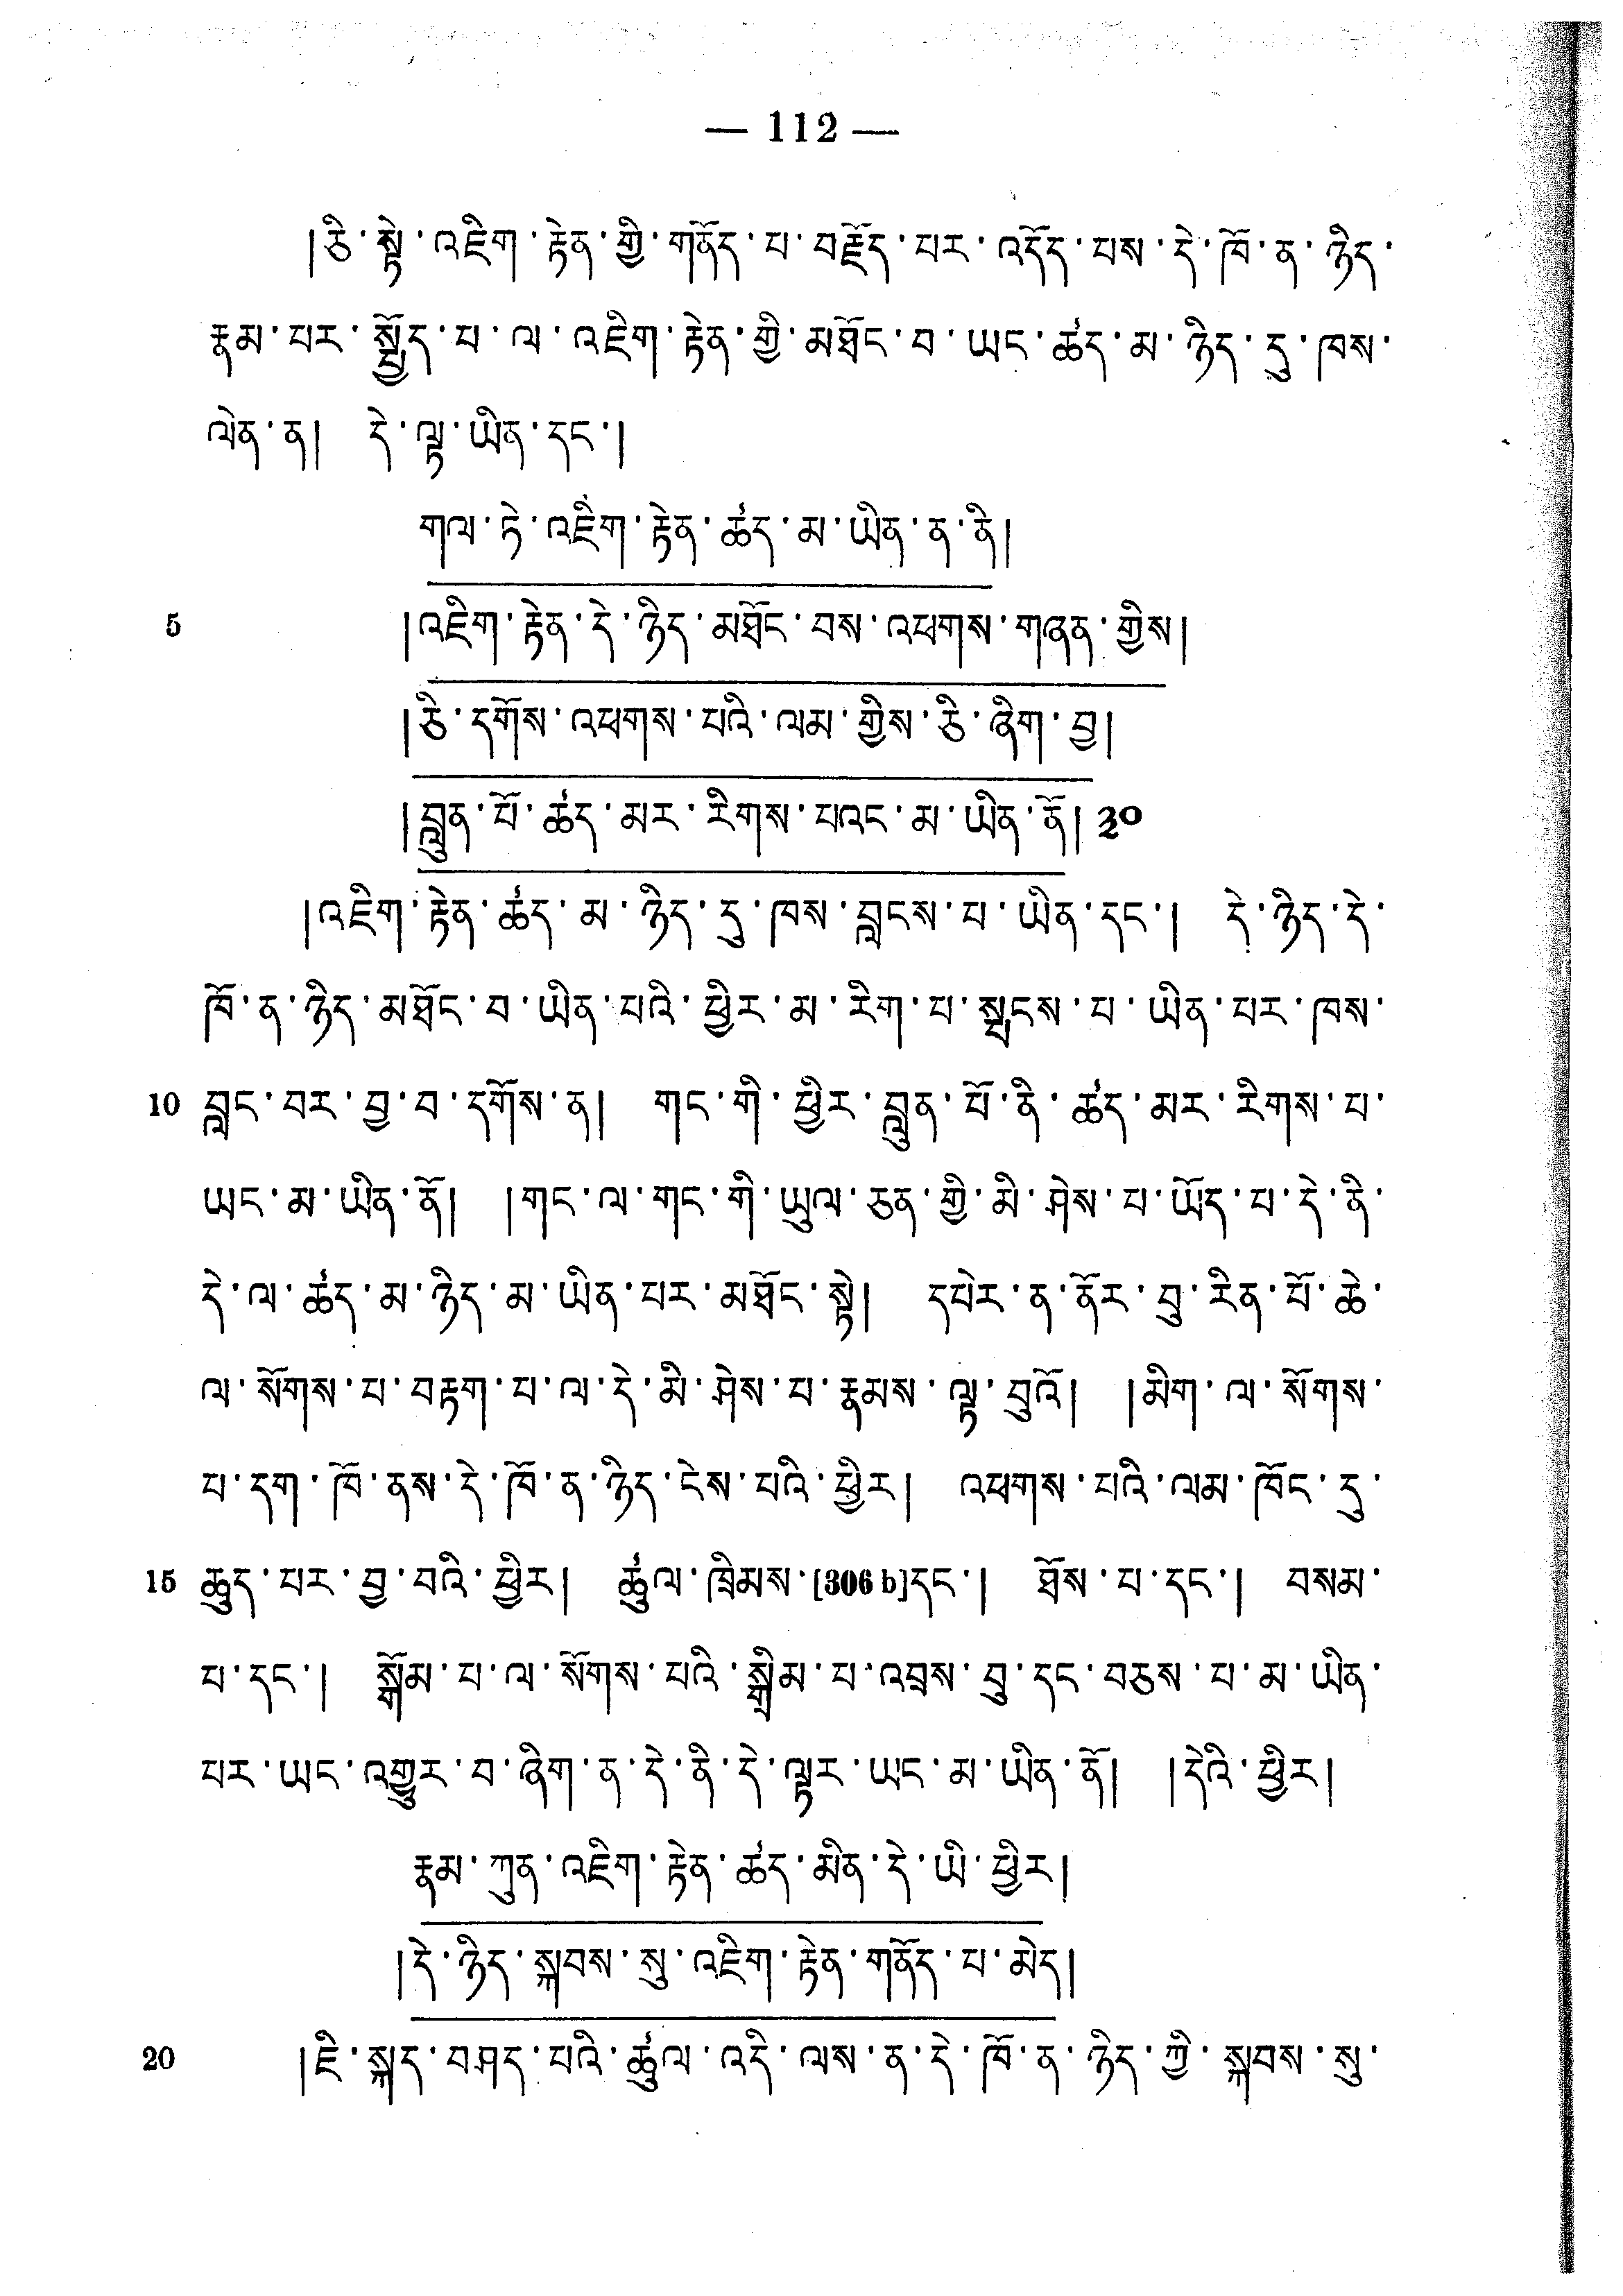 — 112 —
།ཅི་སྟེ་འཇིག་རྟེན་གྱི་གནོད་པ་བརྗོད་པར་འདོད་པས་དེ་ཁོ་ན་ཉིད་
རྣམ་པར་སྤྱོད་པ་ལ་འཇིག་རྟེན་གྱི་མཐོང་བ་ཡང་ཚད་མ་ཉིད་དུ་ཁས་
ལེན་ན། དེ་ལྟ་ཡིན་དང་།
གལ་ཏེ་འཇིག་རྟེན་ཚད་མ་ཡིན་ན་ནི།
5 །འཇིག་རྟེན་དེ་ཉིད་མཐོང་བས་འཕགས་གཞན་གྱིས།
།ཅི་དགོས་འཕགས་པའི་ལམ་གྱིས་ཅི་ཞིག་བྱ།
།བླུན་པོ་ཚད་མར་རིགས་པའང་མ་ཡིན་ནོ། ༣༠
།འཇིག་རྟེན་ཚད་མ་ཉིད་དུ་ཁས་བླངས་པ་ཡིན་དང་། དེ་ཉིད་དེ་
ཁོ་ན་ཉིད་མཐོང་བ་ཡིན་པའི་ཕྱིར་མ་རིག་པ་སྤངས་པ་ཡིན་པར་ཁས་
10 བླང་བར་བྱ་བ་དགོས་ན། གང་གི་ཕྱིར་བླུན་པོ་ནི་ཚད་མར་རིགས་པ་
ཡང་མ་ཡིན་ནོ། །གང་ལ་གང་གི་ཡུལ་ཅན་གྱི་མི་ཤེས་པ་ཡོད་པ་དེ་ནི་
དེ་ལ་ཚད་མ་ཉིད་མ་ཡིན་པར་མཐོང་སྟེ། དཔེར་ན་ནོར་བུ་རིན་པོ་ཆེ་
ལ་སོགས་པ་བརྟག་པ་ལ་དེ་མི་ཤེས་པ་རྣམས་ལྟ་བུའོ། །མིག་ལ་སོགས་
པ་དག་ཁོ་ནས་དེ་ཁོ་ན་ཉིད་ངེས་པའི་ཕྱིར། འཕགས་པའི་ལམ་ཁོང་དུ་
15 ཆུད་པར་བྱ་བའི་ཕྱིར། ཚུལ་ཁྲིམས་[306 b]དང་། ཐོས་པ་དང་། བསམ་
པ་དང་། སྒོམ་པ་ལ་སོགས་པའི་སྒྲིམ་པ་འབྲས་བུ་དང་བཅས་པ་མ་ཡིན་
པར་ཡང་འགྱུར་བ་ཞིག་ན་དེ་ནི་དེ་ལྟར་ཡང་མ་ཡིན་ནོ། །དེའི་ཕྱིར།
རྣམ་ཀུན་འཇིག་རྟེན་ཚད་མིན་དེ་ཡི་ཕྱིར།
།དེ་ཉིད་སྐབས་སུ་འཇིག་རྟེན་གནོད་པ་མེད།
20 །ཇི་སྐད་བཤད་པའི་ཚུལ་འདི་ལས་ན་དེ་ཁོ་ན་ཉིད་ཀྱི་སྐབས་སུ་